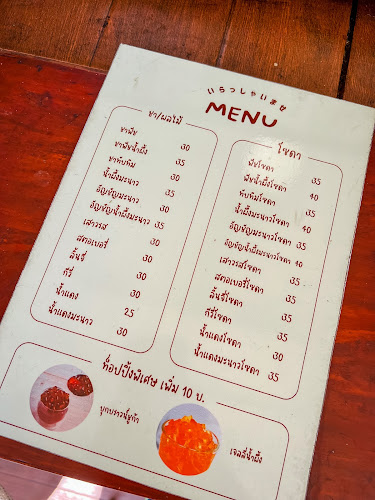 いらっしゃいませ
MENU
ชา/ผลไม้
ชาพีช 30
ชาพีชน้ำผึ้ง 35
ชาทับทิม 30
น้ำผึ้งมะนาว 35
อัญชัญมะนาว 30
อัญชัญน้ำผึ้งมะนาว 35
เสาวรส 30
สตอเบอรี่ 30
ลิ้นจี่ 30
กีวี่ 30
น้ำแดง 25
น้ำแดงมะนาว 30
โซดา
พีชโซดา 35
พีชน้ำผึ้งโซดา 40
ทับทิมโซดา 35
น้ำผึ้งมะนาวโซดา 40
อัญชัญมะนาวโซดา 35
อัญชัญน้ำผึ้งมะนาวโซดา 40
เสาวรสโซดา 35
สตอเบอรี่โซดา 35
ลิ้นจี่โซดา 35
กีวี่โซดา 35
น้ำแดงโซดา 30
น้ำแดงมะนาวโซดา 35
ท็อปปิ้งพิเศษ เพิ่ม 10 บ.
บุกบราวน์ชูก้า
เจลลี่น้ำผึ้ง